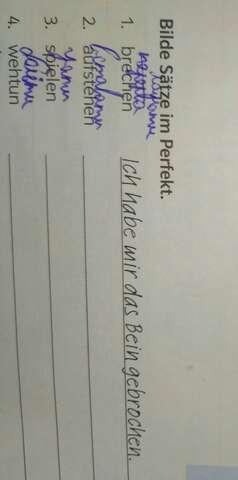 Bilde Sätze im Perfekt.
1. brechen Ich habe mir das Bein gebrochen.
2. aufstehen
3. spielen
4. wehtun